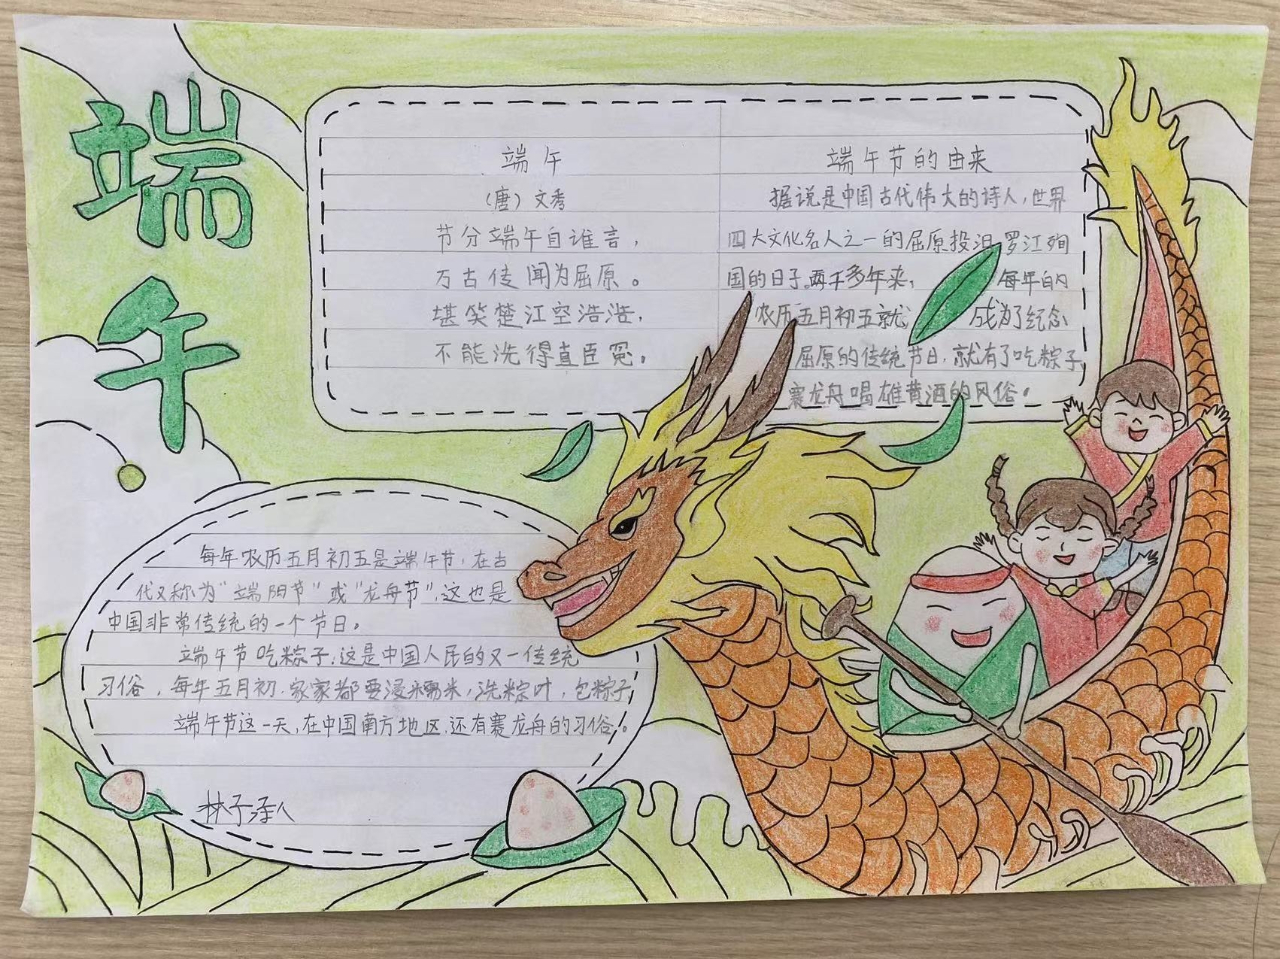 端午
端午
（唐）文秀
节分端午自谁言，
万古传闻为屈原。
堪笑楚江空浩浩，
不能洗得直臣冤。
端午节的由来
据说是中国古代伟大的诗人，世界
四大文化名人之一的屈原投汨罗江殉
国的日子。两千多年来，每年的
农历五月初五就成为了纪念
屈原的传统节日，就有了吃粽子，
赛龙舟喝雄黄酒的风俗。
每年农历五月初五是端午节，在古
代又称为“端阳节”或“龙舟节”，这也是
中国非常传统的一个节日。
端午节吃粽子，这是中国人民的又一传统
习俗，每年五月初，家家都要浸糯米，洗粽叶，包粽子，
端午节这一天，在中国南方地区，还有赛龙舟的习俗。
林子